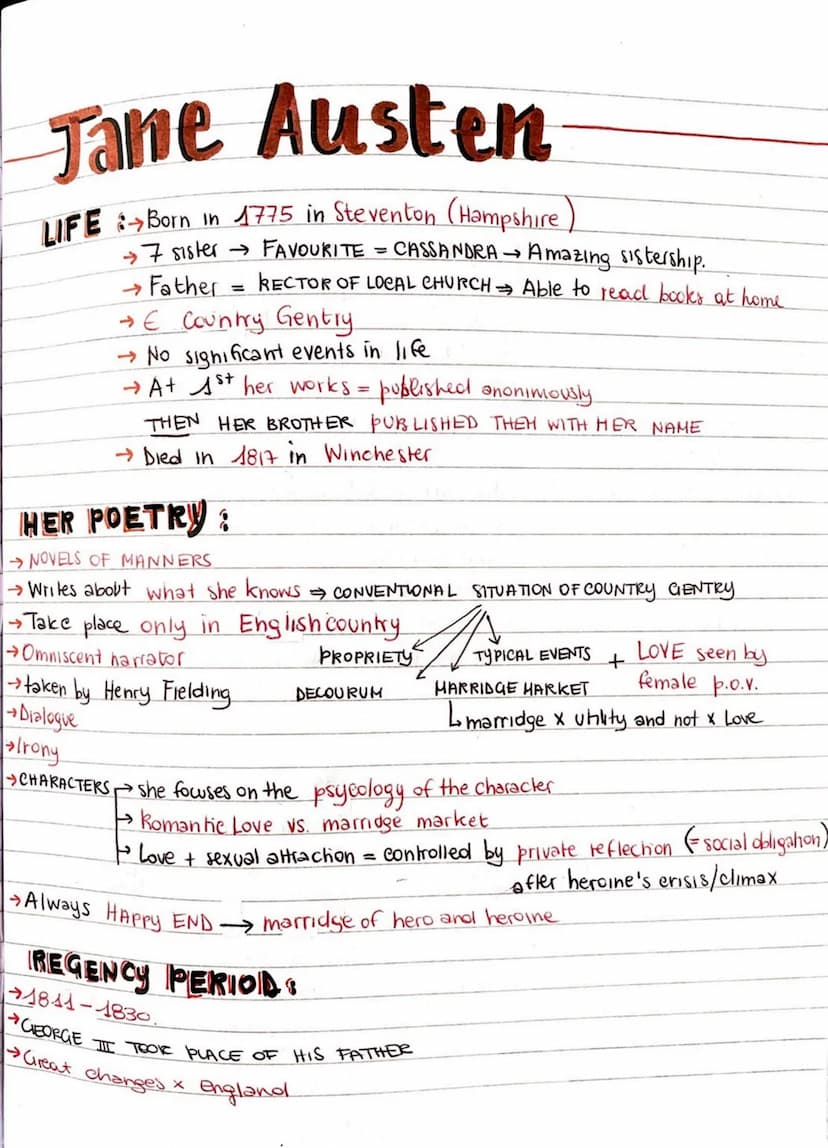 Jane Austen
LIFE : → Born in 1775 in Steventon (Hampshire)
→ 7 sister → FAVOURITE = CASSANDRA → Amazing sistership.
→ Father = RECTOR OF LOCAL CHURCH ⇒ Able to read books at home
→ ∈ Country Gentry
→ No significant events in life
→ At 1st her works = published anonimously
THEN HER BROTHER PUBLISHED THEM WITH HER NAME
→ Died in 1817 in Winchester
HER POETRY :
→ NOVELS OF MANNERS
→ Writes about what she knows ⇒ CONVENTIONAL SITUATION OF COUNTRY GENTRY
→ Take place only in English country
→ Omniscent narrator PROPRIETY TYPICAL EVENTS + LOVE seen by
→ taken by Henry Fielding DECOURUM MARRIDGE MARKET female p.o.v.
→ Dialogue ↳ marridge x utility and not x Love
→ Irony
→ CHARACTERS → she focuses on the psycology of the character
→ Romantic Love vs. marridge market
→ Love + sexual attraction = controlled by private reflection (= social obligation)
after heroine's crisis/climax
→ Always HAPPY END → marridge of hero and heroine
REGENCY PERIOD :
→ 1811 - 1830.
→ GEORGE III TOOK PLACE OF HIS FATHER
→ Great changes x England